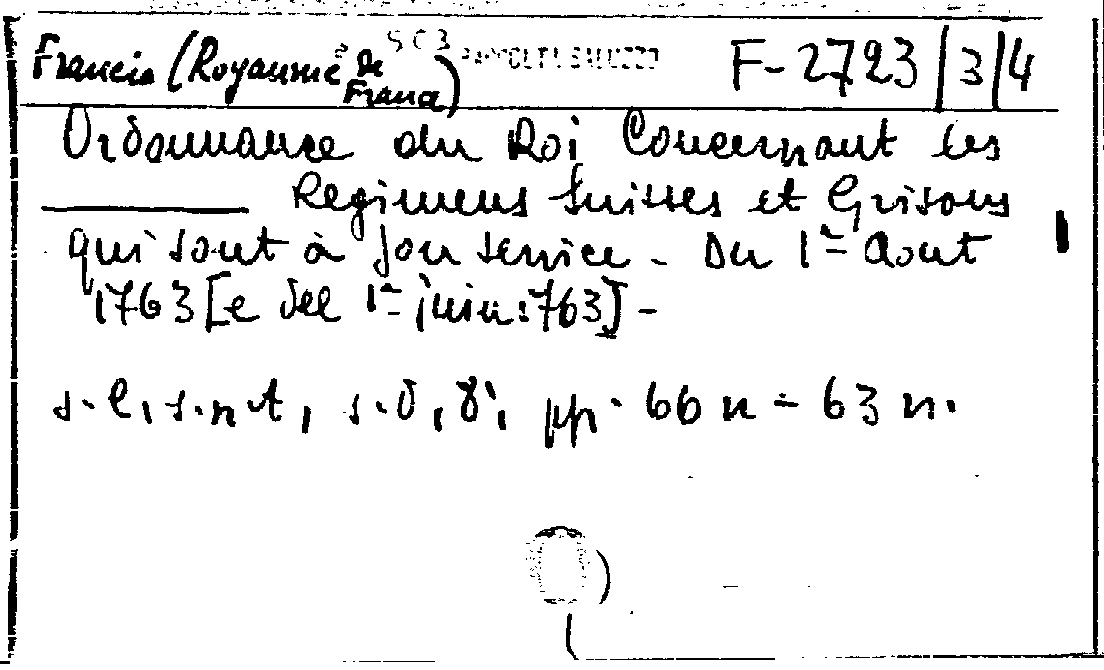 Francia (Royaume de France) 503 RACCOLTA SALUZZO F-2723/3/4
Ordonnance du Roi Concernant les
Regimens Suisses et Grisons
qui sont à son service - Du 1er Aout
1763 [e del 1er juin 1763] -
s.l., s.n.t, s.d, 8°, pp. 66 n - 63 n.